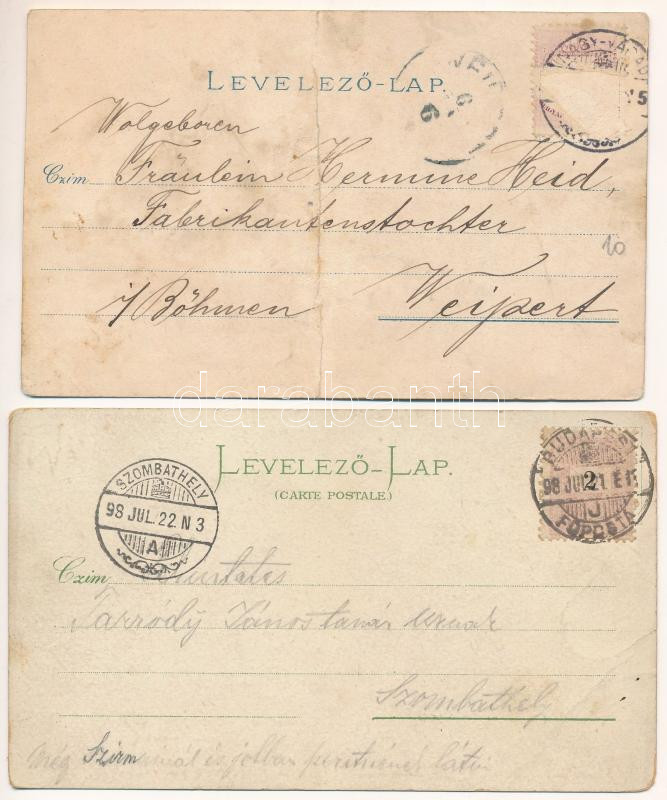 LEVELEZŐ-LAP.
NAGY-VÁRAD
Wolgeboren
Czím Fräulein Hermine Heid,
Fabrikantenstochter
10
i/Böhmen Weipert
darabanth
LEVELEZŐ-LAP.
(CARTE POSTALE.)
SZOMBATHELY
98 JUL. 22 N 3
A
BUDAPEST
2
98 JUL. 21 E
J
FŐPOSTA
Czím
János tanár urnak
Szombathely
még Szirm és jobban